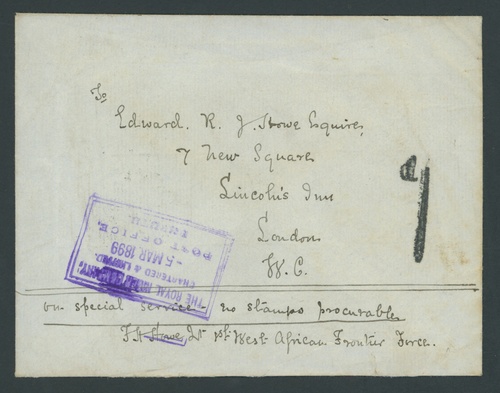 To,
Edward. R. J. Stowe Esquire,
7 New Square
Lincoln's Inn
London
W. C.
d
1
THE ROYAL NIGER COMPANY,
CHARTERED & LIMITED.
-5 MAR 1899
POST OFFICE,
on special service no stamps procurable
Lt 1st West African Frontier Force.